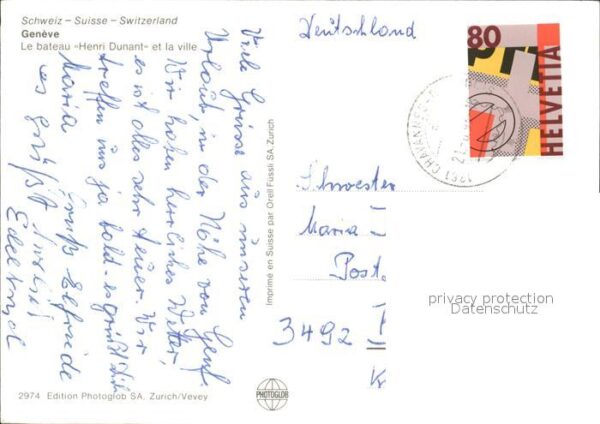 Schweiz – Suisse – Switzerland
Genève
Le bateau «Henri Dunant» et la ville
Viele Grüsse aus unserem
Urlaub, in der Nähe von Genf.
Wir haben herrliches Wetter,
es ist alles sehr teuer. Wir
treffen uns ja bald. es grüßt Dich
Maria Gruß Elfriede
es grüßt
Edeltrud
2974 Edition Photoglob SA, Zürich/Vevey
Imprimé en Suisse par Orell Füssli SA, Zurich
PHOTOGLOB
Deutschland
80
HELVETIA
1261 CHAVANNES
Schwester
Maria
Post.
3492
privacy protection
Datenschutz